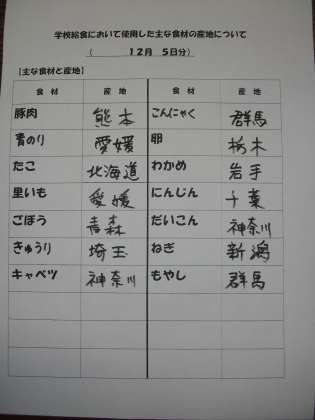 学校給食において使用した主な食材の産地について
（　12月　5日分）
【主な食材と産地】
食材　産地　食材　産地
豚肉　熊本　こんにゃく　群馬
青のり　愛媛　卵　栃木
たこ　北海道　わかめ　岩手
里いも　愛媛　にんじん　千葉
ごぼう　青森　だいこん　神奈川
きゅうり　埼玉　ねぎ　新潟
キャベツ　神奈川　もやし　群馬